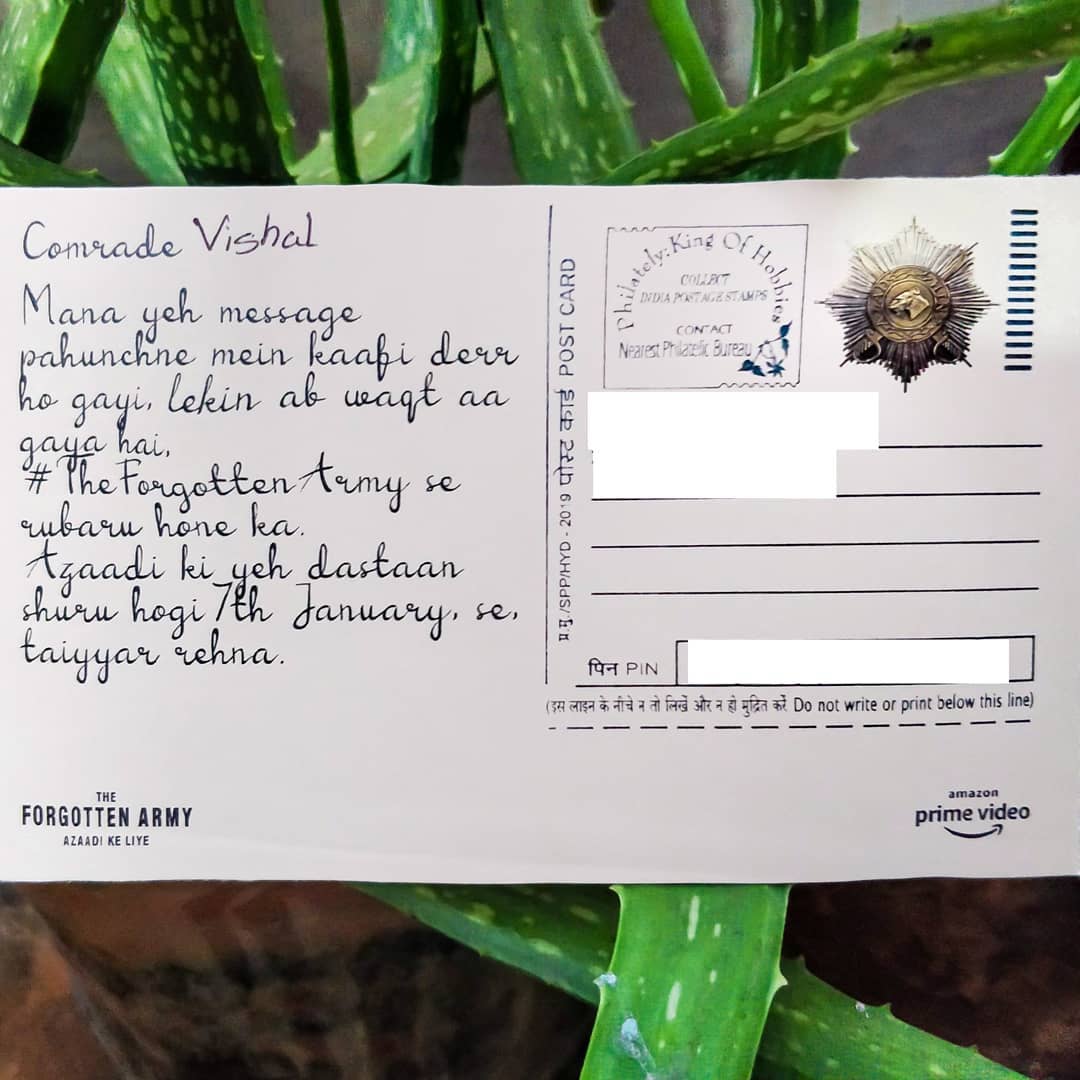 Comrade Vishal
Mana yeh message
pahunchne mein kaafi derr
ho gayi, lekin ab waqt aa
gaya hai,
#TheForgottenArmy se
rubaru hone ka.
Azaadi ki yeh dastaan
shuru hogi 7th January, se,
taiyyar rehna.
THE
FORGOTTEN ARMY
AZAADI KE LIYE
प्र.मु./SPP/HYD - 2019 पोस्ट कार्ड POST CARD
Philately: King Of Hobbies
COLLECT
INDIA POSTAGE STAMPS
CONTACT
Nearest Philatelic Bureau
पिन PIN
(इस लाइन के नीचे न तो लिखें और न ही मुद्रित करें Do not write or print below this line)
amazon
prime video